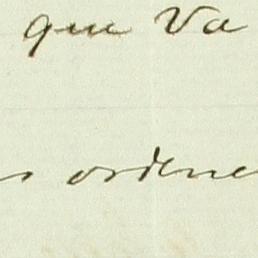 que Va
s ordene